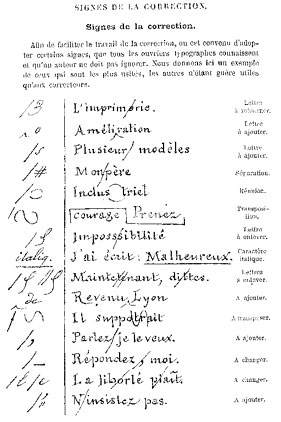 SIGNES DE LA CORRECTION.
Signes de la correction.
Afin de faciliter le travail de la correction, on est convenu d'adop-
ter certains signes, que tous les ouvriers typographes connaissent
et qu'un auteur ne doit pas ignorer. Nous donnons ici un exemple
de ceux qui sont les plus usités, les autres n'étant guère utiles
qu'aux correcteurs.
L'imprimerie. Lettre à retourner.
Améliration Lettre à ajouter.
/s Plusieur modèles Lettre à ajouter.
/# Monpère Séparation.
Inclus triel Réunion.
courage Prenez Transposi-
tion.
Imposssibilité Lettre à enlever.
italiq. J'ai écrit: Malheureux. Caractère italique.
Maintennant, dittes. Lettres à enlever.
de Revenu Lyon A ajouter.
Il A transposer.
/, Parlez je le veux. A ajouter.
/- Répondez, moi. A changer.
La A changer.
N'insistez pas. A ajouter.